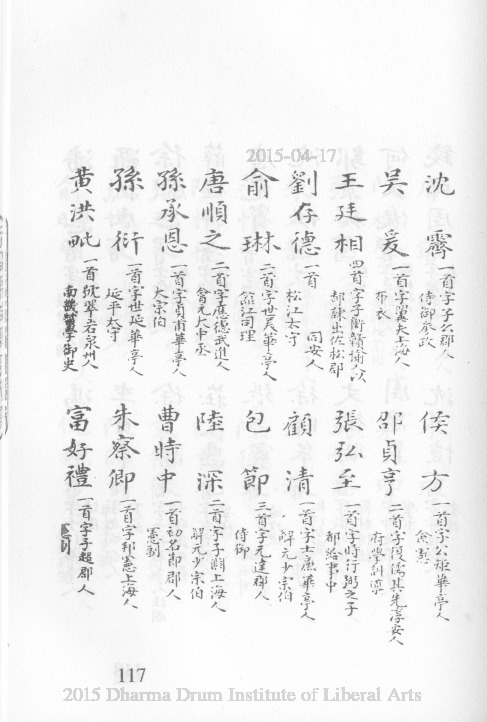 2015-04-17
沈霽 一首字子公郡人侍御參政
侯方 一首字公矩華亭人僉憲
吳爰 一首字翼夫上海人布衣
邵貞亨 二首字復儒其先淳安人府學訓導
王廷相 四首字子衡
張弘至 一首字時行弼之子都給事中
劉存德 一首 同安人松江太守
顧清 一首字士廉華亭人解元少宗伯
俞琳 二首字世美華亭人 江司理
包節 三首字元達郡人侍御
唐順之 二首字應德武進人會元大中丞
陸深 二首字子淵上海人解元少宗伯
孫承恩 一首字貞甫華亭人大宗伯
曹時中 一首初名節郡人憲副
孫衍 一首字世延華亭人延平太守
朱察卿 一首字邦憲上海人
黃洪毗 一首號翠岩泉州人南畿督學御史
富好禮 一首字子超郡人憲副
117
2015 Dharma Drum Institute of Liberal Arts